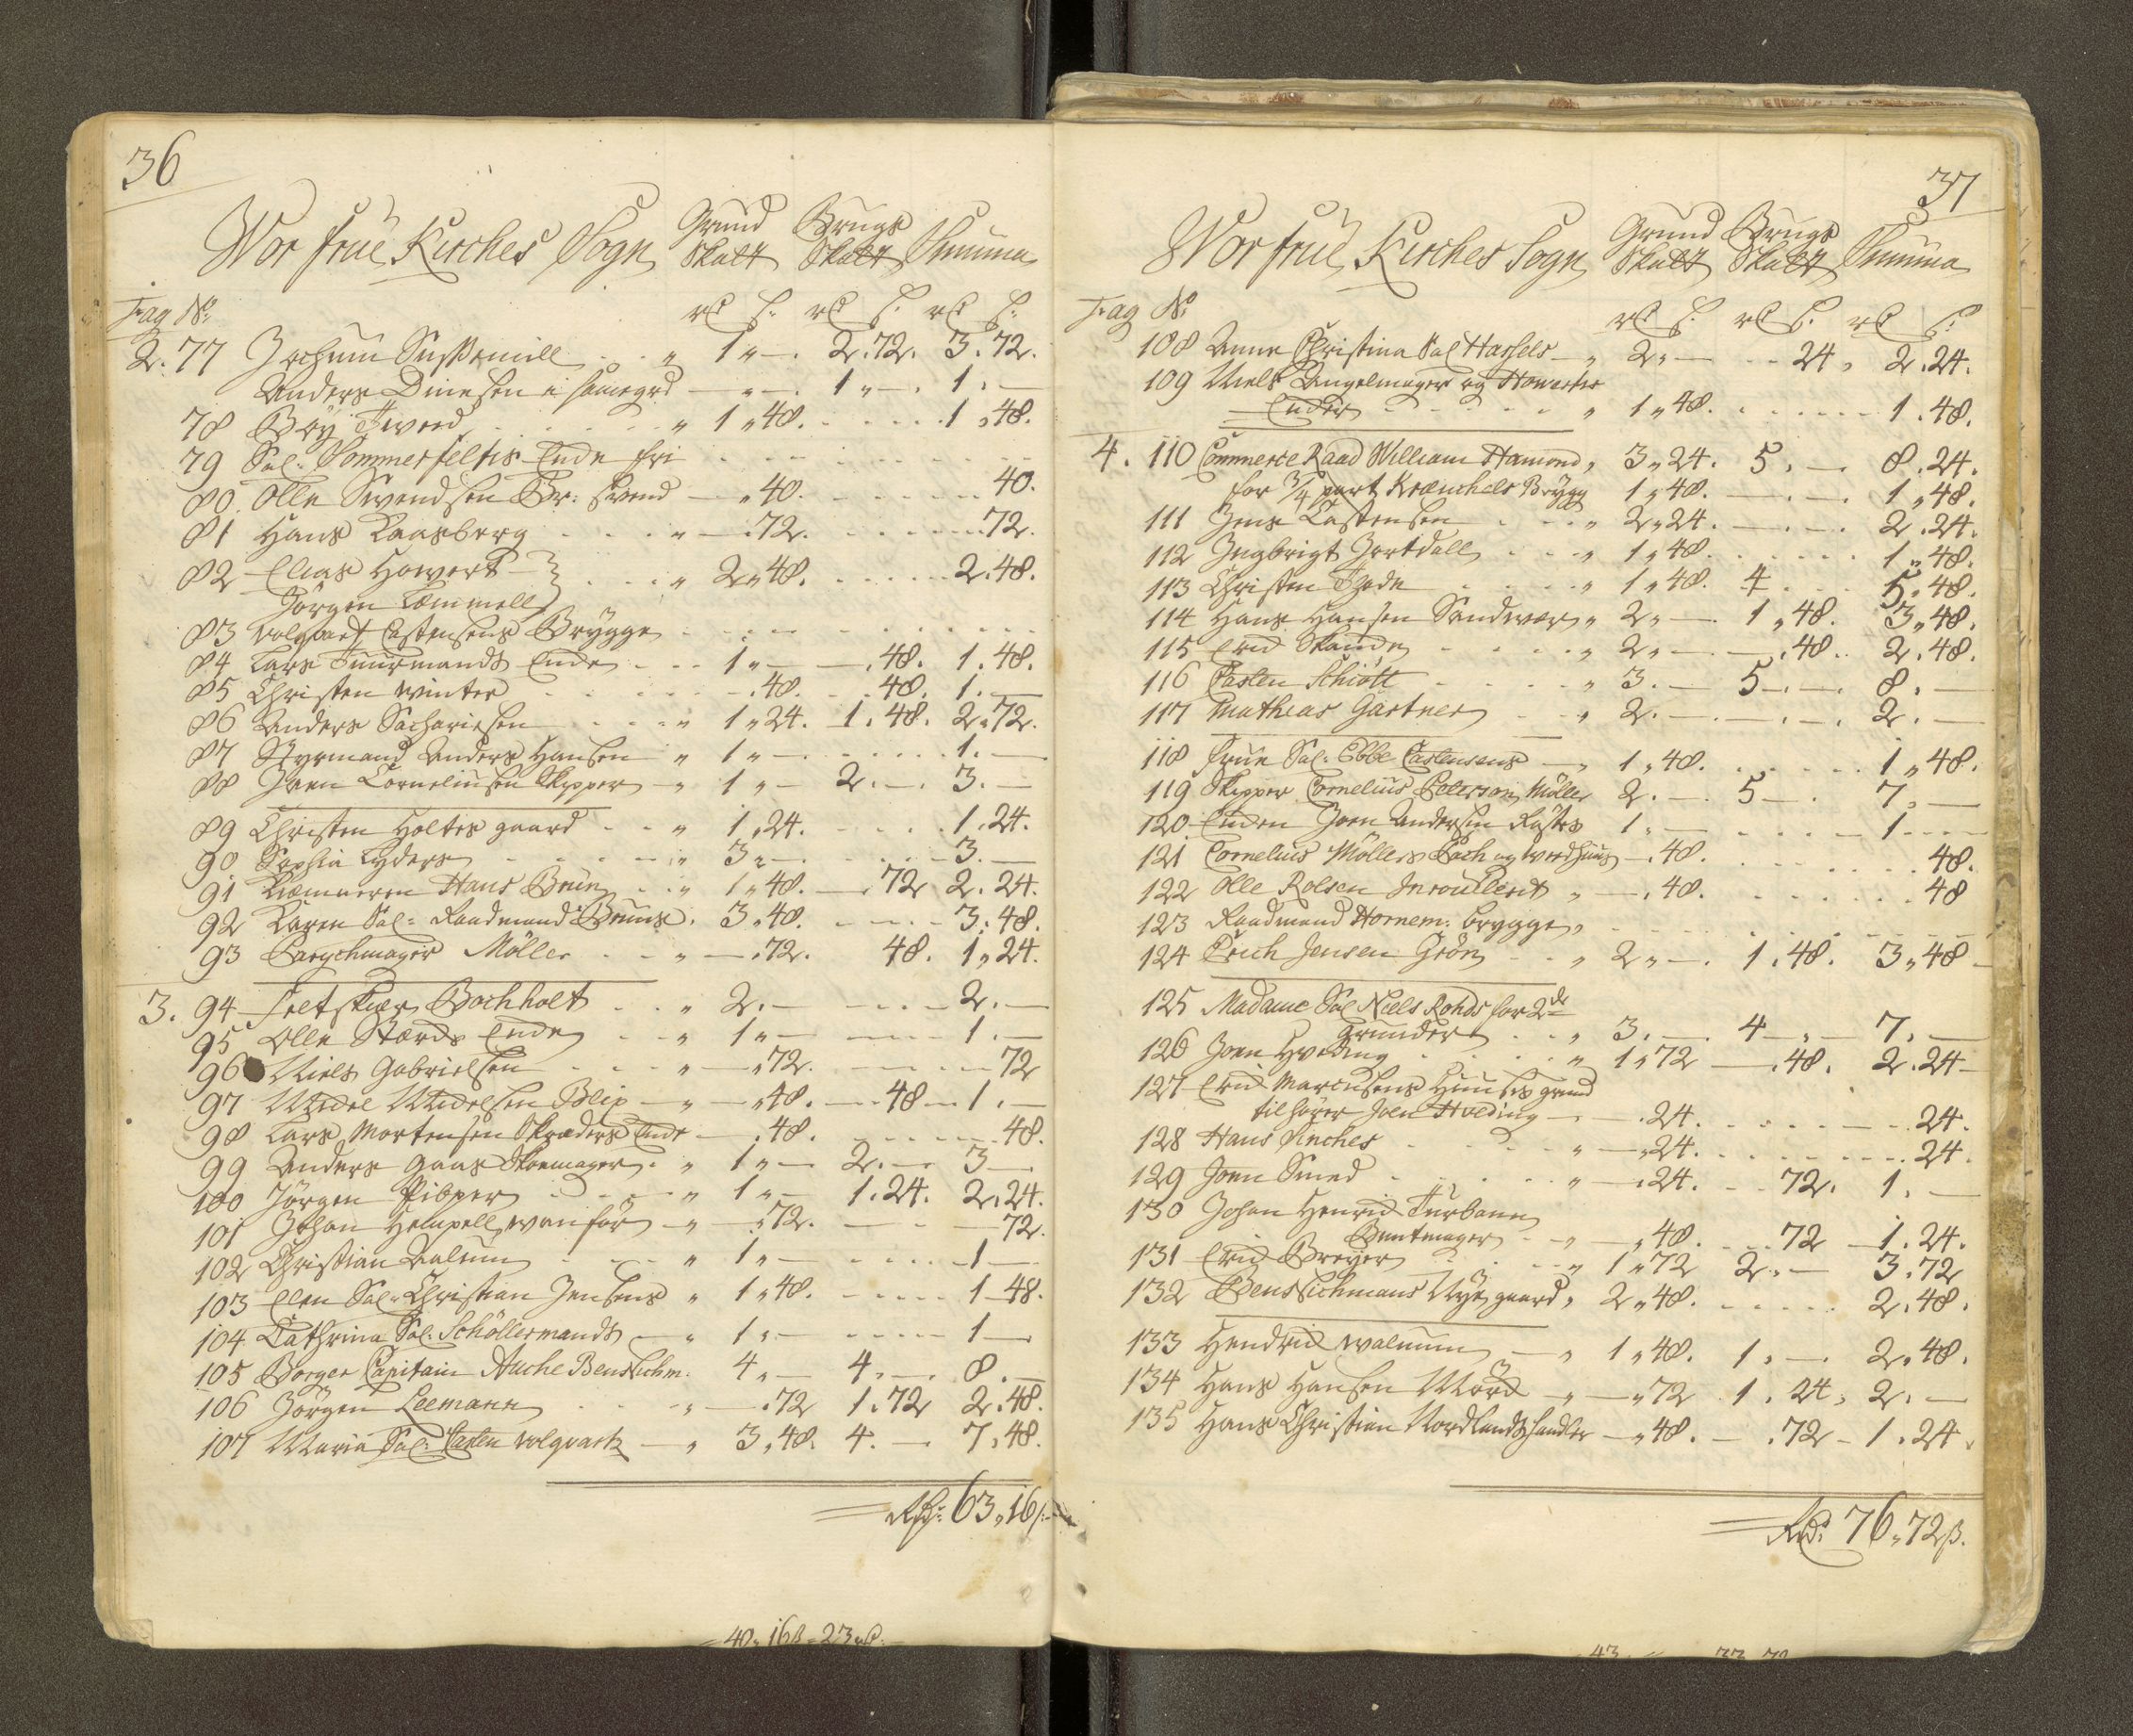 36
Grund Brugs
Wor frue Kirches Sogn Skatt Skatt Summa
Fag No:
rd s: rd s: rd s:
2. 77 Jochum Sussemill " 1 " — . 2.72. 3.72.
Anders Dinesen i samegrd — " — . 1 " — . 1 . —
78 Bøÿ Tweed " 1 " 48. 1 " 48.
79 Sal: Sommerfeltis Ende fri
80. Olle Svendsen — " 40. 40.
81 Hans Raasberg " — .72. 72.
82 Elias Howert — } " 2 " 48. 2.48.
Jörgen Lemmell
83 Volqvart Castensens Brÿgge
84 Lars Fuurmands Ende 1 " — — .48. 1.48.
85 Christen Winter — .48. .48. 1. —
86 Anders Sachariesen " 1 " 24. 1.48. 2.72.
87 Styrmand Anders Hansen " 1 " — 1. —
88 Joen Corneliusen Skipper " 1 " — 2. — . 3. —
89 Christen Holtes gaard " 1 " 24. 1.24.
90 Sophia Lyders " 3 " — 3. —
91 Kiemneren Hans Brun " 1 " 48. — .72 2.24.
92 Karen Sal: Raadmand Bruns. 3.48. 3.48.
93 Parychmager Möller " — .72. 48. 1.24.
3. 94 Feltskier Bochholt " 2. — 2. —
95 Olle Stords Ende " 1 " — 1. —
96 Niels Gabrielsen " — " 72. 72
97 Michel Michelsen Blix — " — " 48. 48 — 1. —
98 Lars Mortensen Skræders Ende — .48. 48.
99 Anders Gaas Skoemager. " 1 " — 2. — 3 —
100 Jörgen Pibper " 1 " — 1.24. 2.24.
101 Johan Hempell, wanför — " — .72. 72.
102 Christian Aalum " 1 " — 1 —
103 Elen Sal: Christian Jensens " 1 " 48. 1 — 48.
104 Cathrina Sal: Schöllermands — " 1 " — 1 —
105 Borger Capitain Hache Bensichm. 4 " — 4. — . 8. —
106 Jörgen Leemann " — .72 1.72 2.48.
107 Maria Sal: Casten Volqvartz — " 3.48. 4. — 7.48.
Rdr: 63.16s:
40. 16ß = 23
37
Grund Brugs
Wor frue Kirches Sogn Skatt Skatt Summa
Fag No
rd s: rd s. rd s:
108 Anne Christina Sal Hassels — " 2 " — 24. 2.24.
109 Niels Angelmager og Howerts
Ender " 1 " 48. 1.48.
4. 110 Commerce Raad William Hamond " 3 " 24. 5. — . 8.24.
for 3/4 part Kræmchels Brÿgg 1 " 48. — . — . 1 " 48.
111 Jens Castensen " 2 " 24. — . — . 2.24.
112 Ingbrigt Hertdall " 1 " 48. 1 " 48.
113 Christen Thode " 1 " 48. 4 5.48.
114 Hans Hansen Sandwær " 2 " — . 1 " 48. 3 " 48.
115 Erich " 2 " — . — .48. 2.48.
116 Casten Schiött " 3. — 5 — . — . 8. —
117 Mathias Gartner " 2. — . — . — . 2. —
118 Frue Sal: Ebbe Castensens — " 1 " 48. 1 " 48.
119 Skipper Cornelius Peterson Möller 2. — . 5 — . 7. —
120 Enken Joen Andersen Röstes 1. — 1
121 Cornelius Möllers Pach og Wedhuus — .48. 48.
122 Olle Rolsen " — .48. 48
123 Raadmand Hornem: Brygge,
124 Erich Jensen Grön " 2 " — . 1.48. 3 " 48 —
125 Madame Sal Niels Rohds for 2de
grunder " 3. — . 4 — " — 7. —
126 Joen Hveding " 1 " 72 — .48. 2.24 —
127 Erich Marcusens Huuses grund
tilhører Joen Hveding — — .24. 24.
128 Hans Finches " — " 24. 24.
129 Joen Smed " — .24. 72. 1. —
130 Johan Henrich Furbann
Buntmager " — " 48. 72 — 1.24.
131 Erich Breyer " 1 " 72 2. — 3.72
132 Bensichmans Nÿe gaard, 2 " 48. 2.48.
133 Hendrich Walnum — " 1 " 48. 1. — . 2.48.
134 Hans Hansen Mörch — " — " 72 1.24. 2. —
135 Hans Christian Nordlandshandler — " 48. — .72 — 1.24.
Rdr: 76 " 72ß.